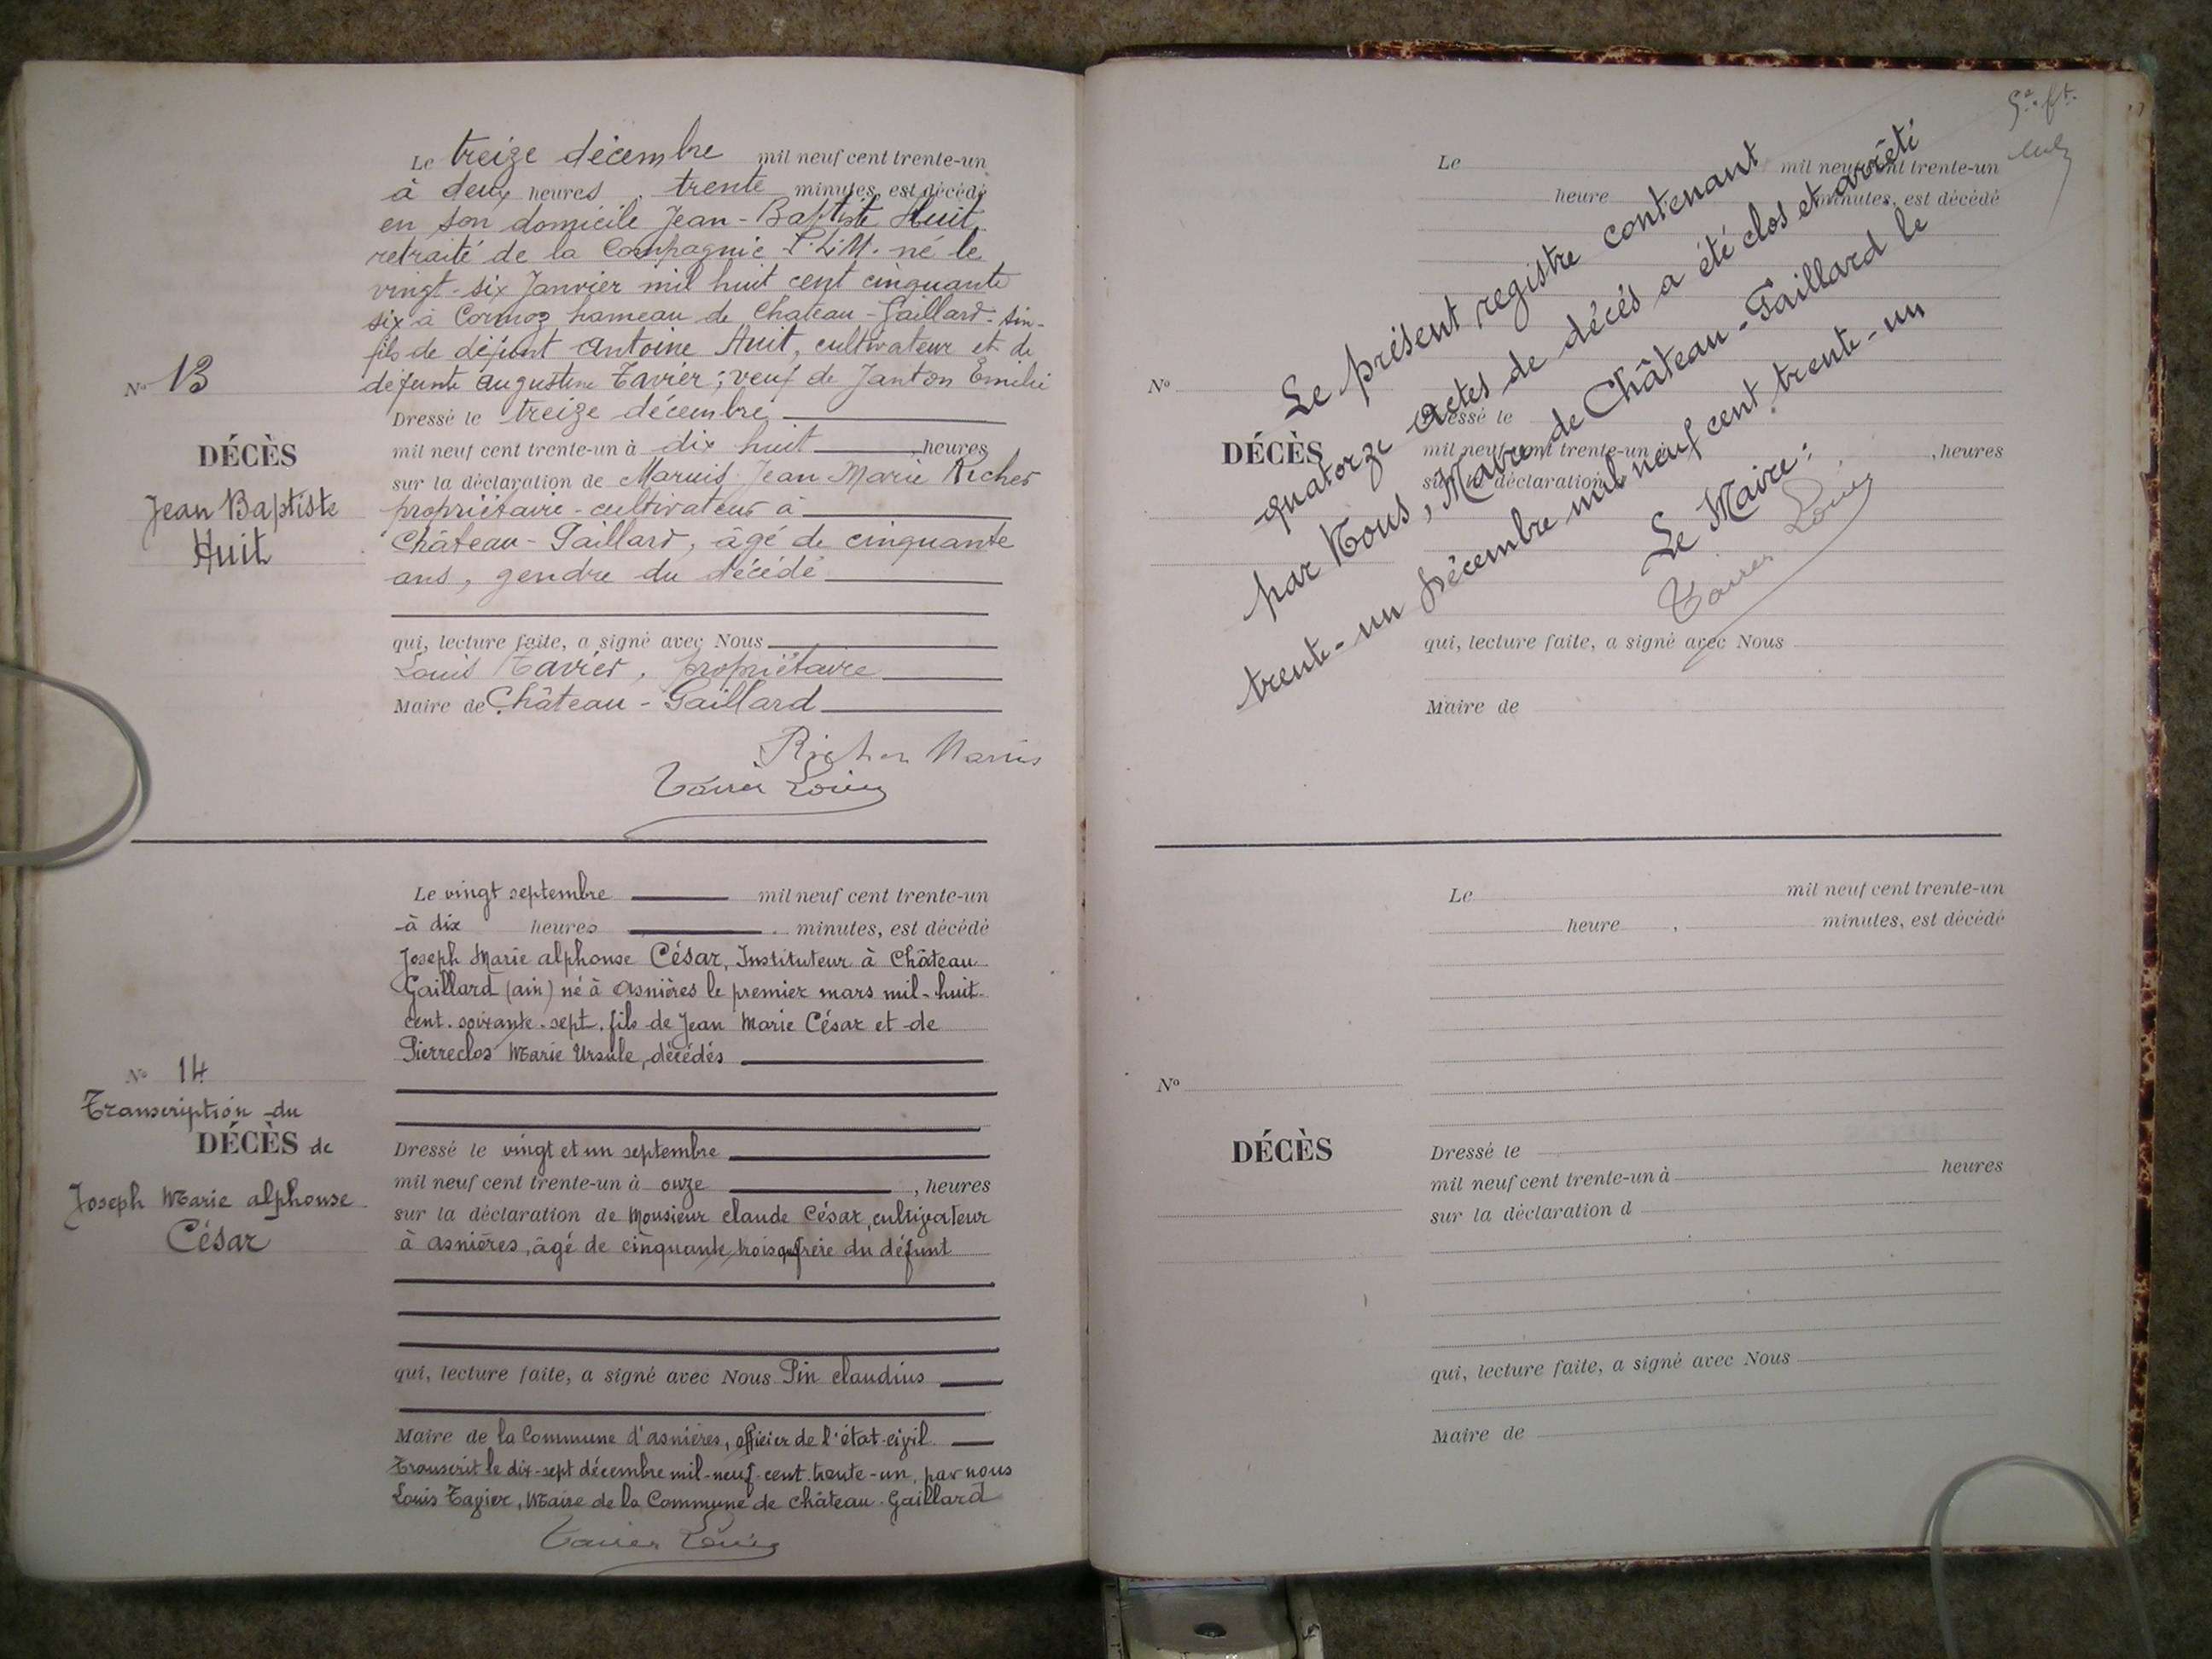 Le treize décembre mil neuf cent trente-un
à deux heures, trente minutes, est décédé
en son domicile Jean-Baptiste Huit,
retraité de la Compagnie P.L.M. né le
vingt-six Janvier mil huit cent cinquante
six à Cormoz hameau de Château-Gaillard-Ain-
fils de défunt Antoine Huit, cultivateur et de
défunte Augustine Tavier; veuf de Janton Emilie
Nº 13
DÉCÈS
Jean Baptiste
Huit
Dressé le treize décembre
mil neuf cent trente-un à dix huit, heures
sur la déclaration de Marius Jean Marie Richer
propriétaire-cultivateur à
Château-Gaillard, âgé de cinquante
ans, gendre du décédé
qui, lecture faite, a signé avec Nous
Louis Tavier, propriétaire
Maire de Château-Gaillard
Richer Marius
Tavier Louis
Le vingt septembre mil neuf cent trente-un
à dix heures minutes, est décédé
Joseph Marie alphonse César, Instituteur à Château
Gaillard (ain) né à Asnières le premier mars mil-huit-
cent-soixante-sept, fils de Jean Marie César et de
Pierreclos Marie Ursule, décédés
Nº 14
Transcription du
DÉCÈS de
Joseph Marie alphonse
César
Dressé le vingt et un septembre
mil neuf cent trente-un à onze, heures
sur la déclaration de Monsieur claude César, cultivateur
à asnières, âgé de cinquante trois frère du défunt
qui, lecture faite, a signé avec Nous Pin claudius
Maire de la Commune d'asnières, officier de l'état-civil
Transcrit le dix-sept décembre mil-neuf-cent-trente-un, par nous
Louis Tavier, Maire de la Commune de Château-Gaillard
Tavier Louis
Le mil neuf cent trente-un
heure minutes, est décédé
Nº
DÉCÈS
Dressé le
mil neuf cent trente-un à , heures
sur la déclaration d
qui, lecture faite, a signé avec Nous
Maire de
Le présent registre contenant
quatorze actes de décès a été clos et arrêté
par Nous, Maire de Château-Gaillard le
trente-un Décembre mil neuf cent trente-un
Le Maire:
Tavier Louis
Le mil neuf cent trente-un
heure , minutes, est décédé
Nº
DÉCÈS
Dressé le
mil neuf cent trente-un à heures
sur la déclaration d
qui, lecture faite, a signé avec Nous
Maire de